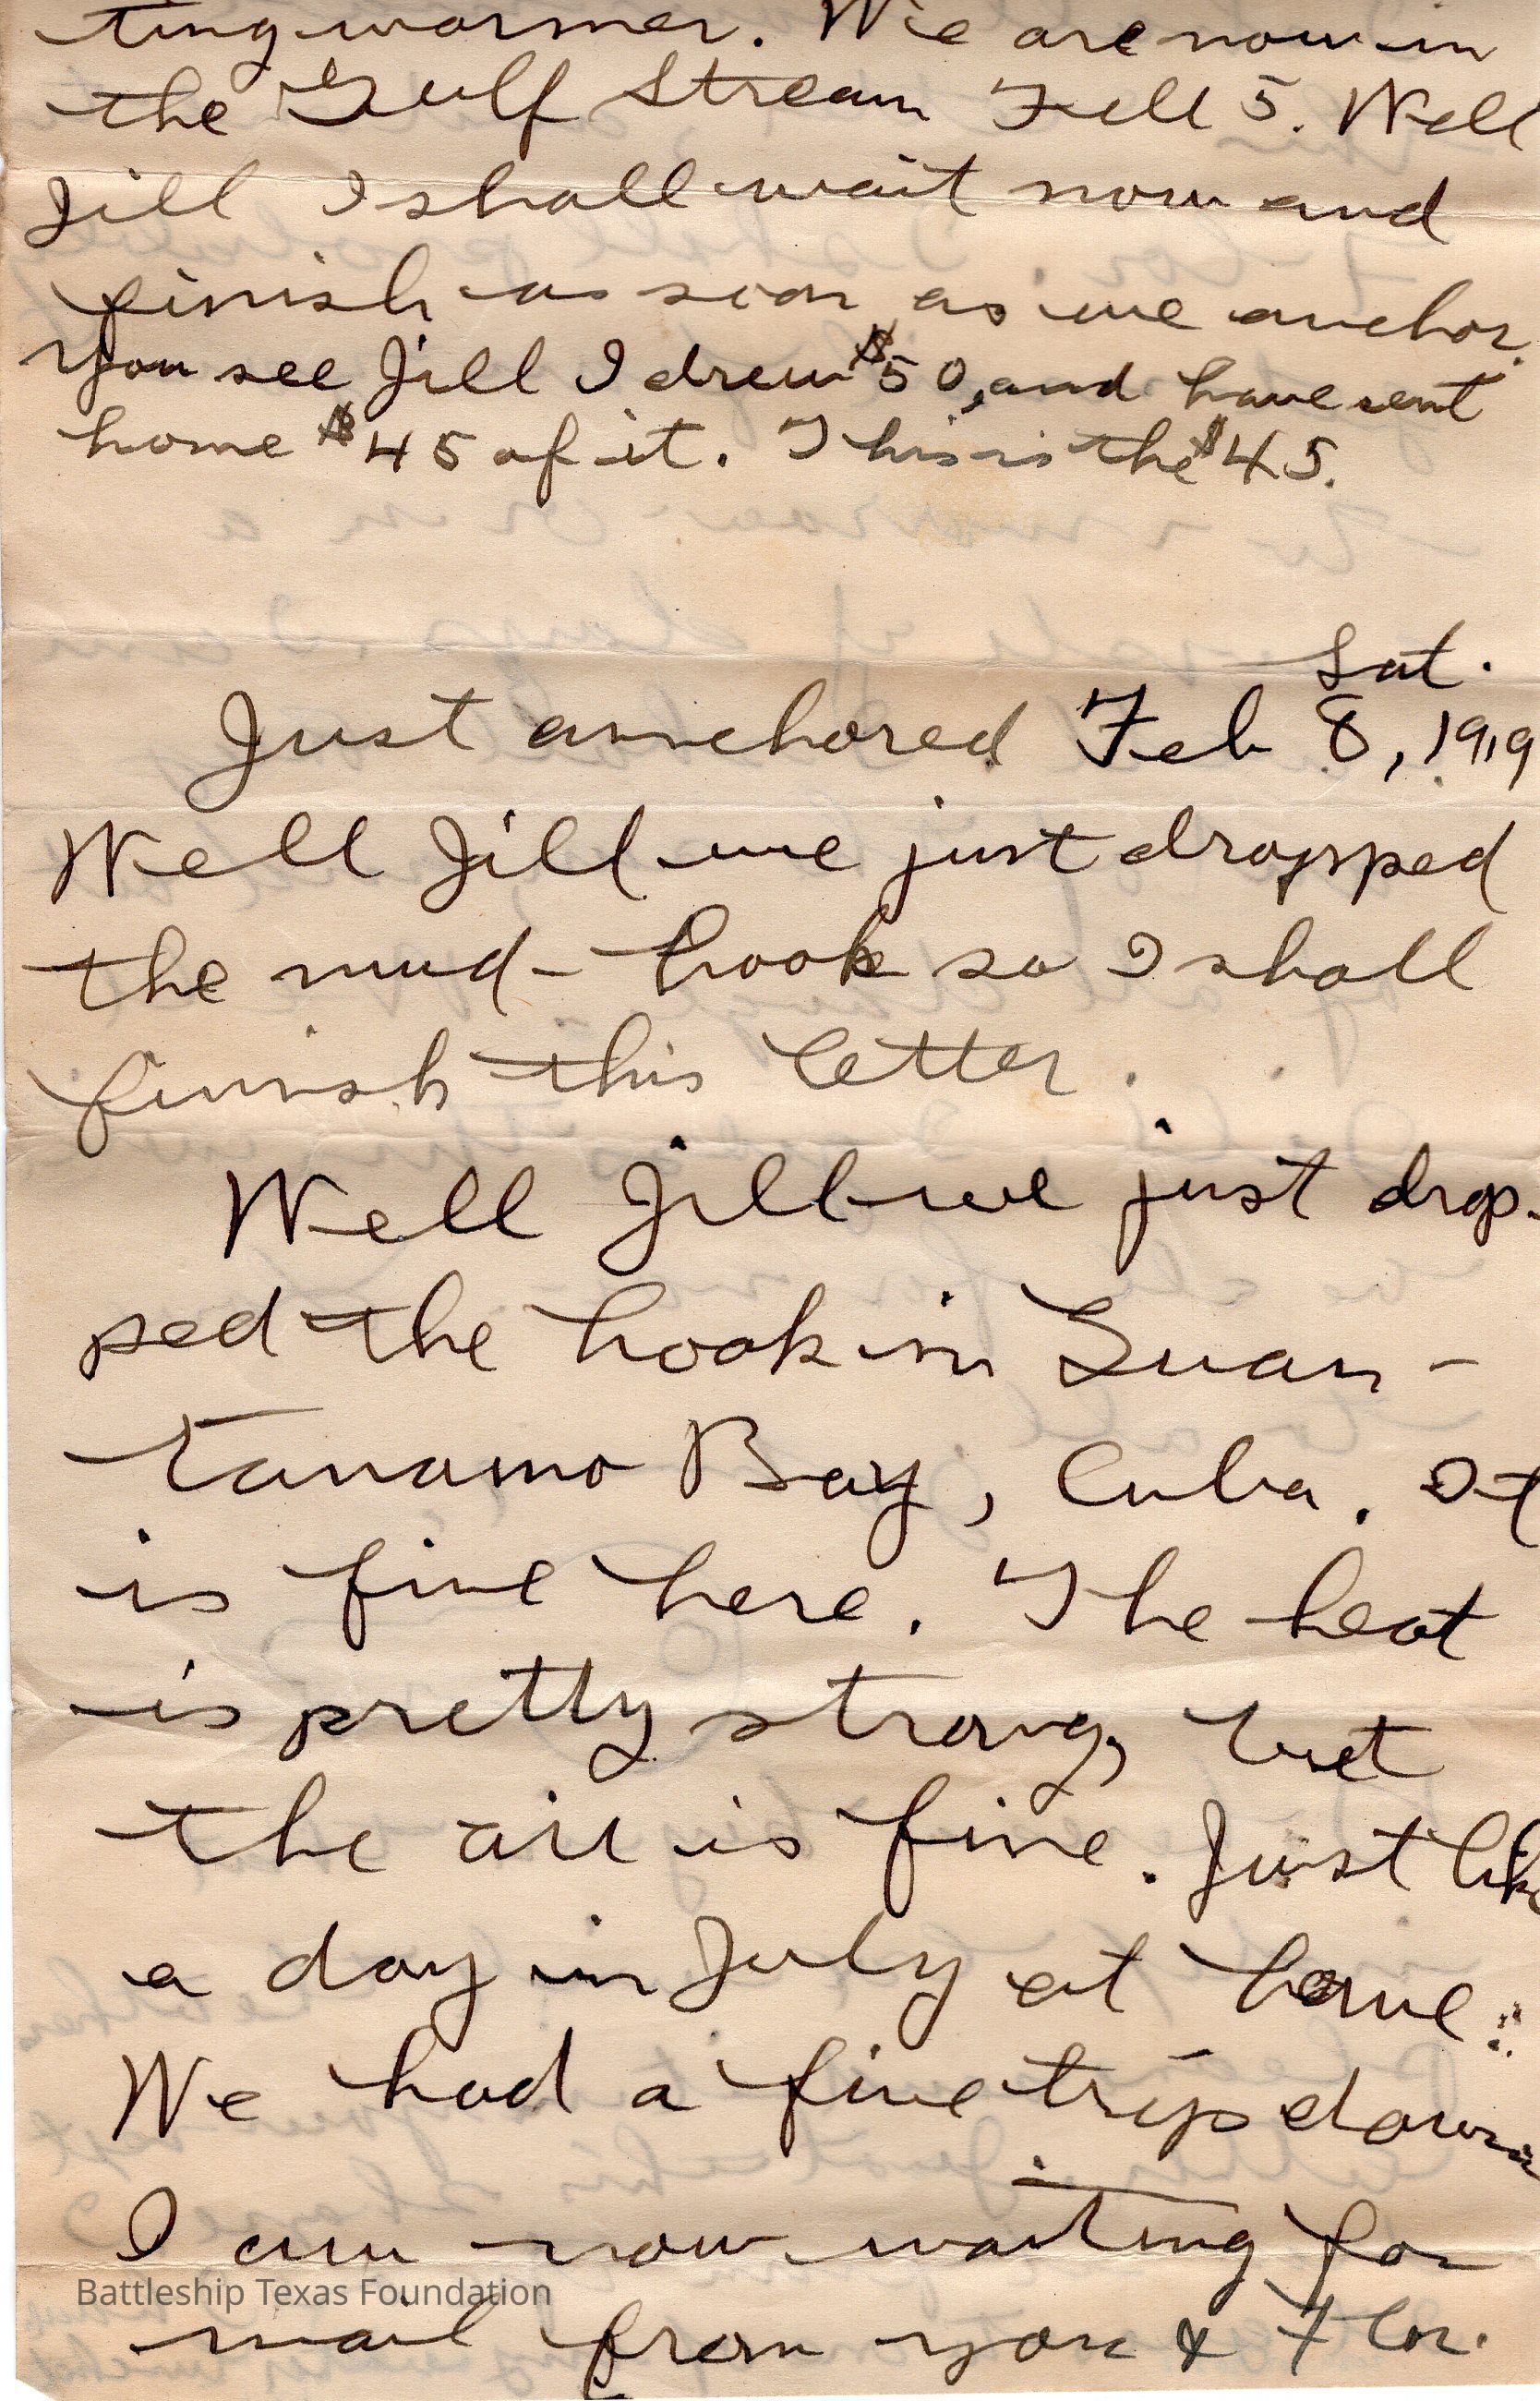 ting warmer. We are now in
the Gulf Stream Feb 5. Well
Jill I shall wait now and
finish as soon as we anchor.
You see Jill I drew $50, and have sent
home $45 of it. This is the $45.
Sat.
Just annchored Feb 8, 1919
Well Jill we just dropped
the mud-hook so I shall
finish this letter.
Well Jill we just drop-
ped the hook in Guan-
tanamo Bay, Cuba. It
is fine here. The heat
is pretty strong, but
the air is fine. Just like
a day in July at home.
We had a fine trip down
I am now waiting for
Battleship Texas Foundation
mail from you & Flor.